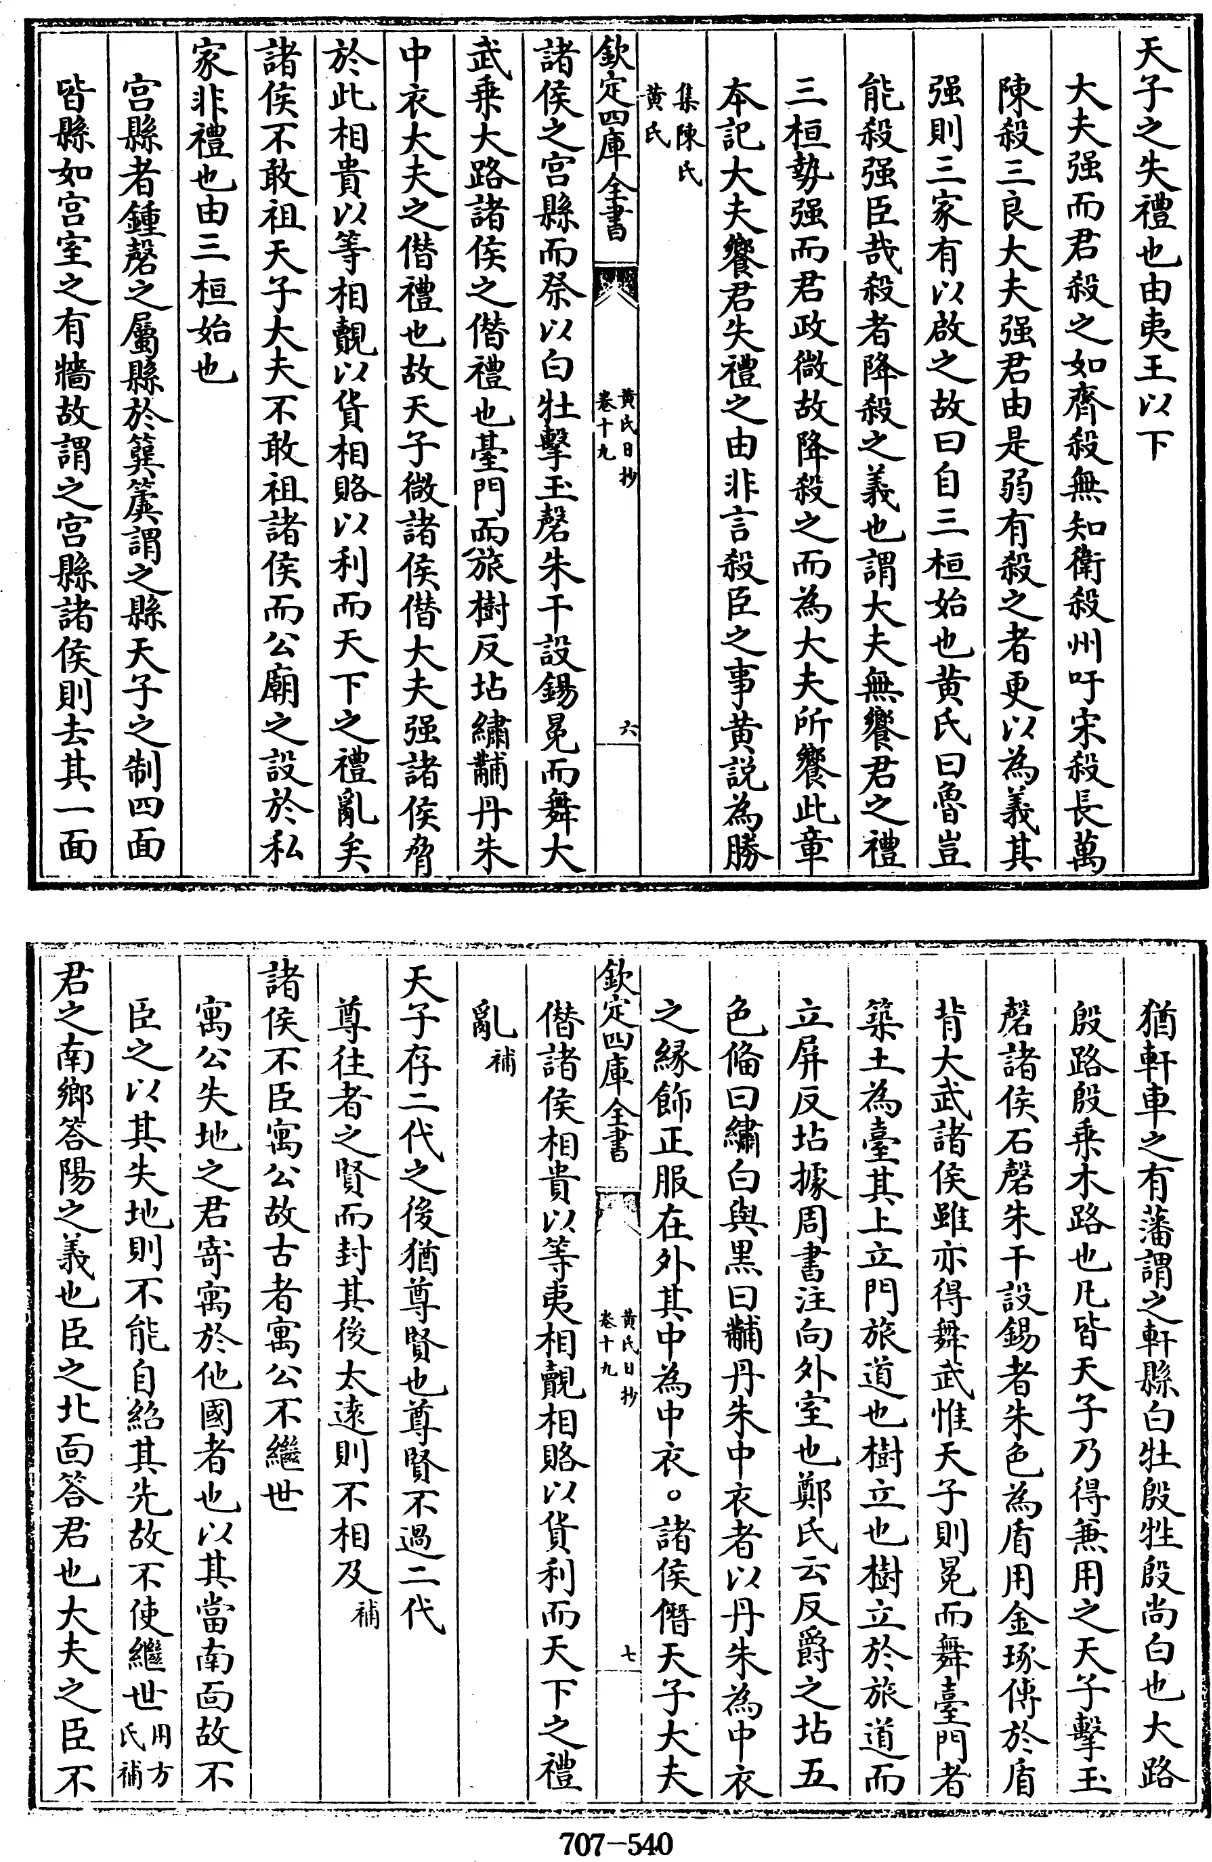 天子之失禮也由夷王以下
大夫强而君殺之如齊殺無知衛殺州吁宋殺長萬
陳殺三良大夫强君由是弱有殺之者更以為義其
强則三家有以啟之故曰自三桓始也黄氏曰魯豈
能殺强臣哉殺者降殺之義也謂大夫無饗君之禮
三桓勢强而君政微故降殺之而為大夫所饗此章
本記大夫饗君失禮之由非言殺臣之事黄說為勝
集陳氏
黄氏
欽定四庫全書
黄氏日抄
卷十九
六
諸侯之宫縣而祭以白牡擊玉磬朱干設錫冕而舞大
武乗大路諸侯之僭禮也臺門而旅樹反坫繡黼丹朱
中衣大夫之僭禮也故天子微諸侯僭大夫强諸侯脅
於此相貴以等相覿以貨相賂以利而天下之禮亂矣
諸侯不敢祖天子大夫不敢祖諸侯而公廟之設於私
家非禮也由三桓始也
宫縣者鍾磬之屬縣於簨簴謂之縣天子之制四面
皆縣如宫室之有牆故謂之宫縣諸侯則去其一面
猶軒車之有藩謂之軒縣白牡殷牲殷尚白也大路
殷路殷乗木路也凡皆天子乃得兼用之天子擊玉
磬諸侯石磬朱干設錫者朱色為盾用金琢傅於盾
背大武諸侯雖亦得舞武惟天子則冕而舞臺門者
築土為臺其上立門旅道也樹立也樹立於旅道而
立屏反坫據周書注向外室也鄭氏云反爵之坫五
色備曰繡白與黑曰黼丹朱中衣者以丹朱為中衣
之縁飾正服在外其中為中衣○諸侯僭天子大夫
欽定四庫全書
黄氏日抄
卷十九
七
僭諸侯相貴以等夷相覿相賂以貨利而天下之禮
亂補
天子存二代之後猶尊賢也尊賢不過二代
尊往者之賢而封其後太逺則不相及補
諸侯不臣寓公故古者寓公不繼世
寓公失地之君寄寓於他國者也以其當南面故不
臣之以其失地則不能自紹其先故不使繼世用方
氏補
君之南鄉答陽之義也臣之北面答君也大夫之臣不
707-540